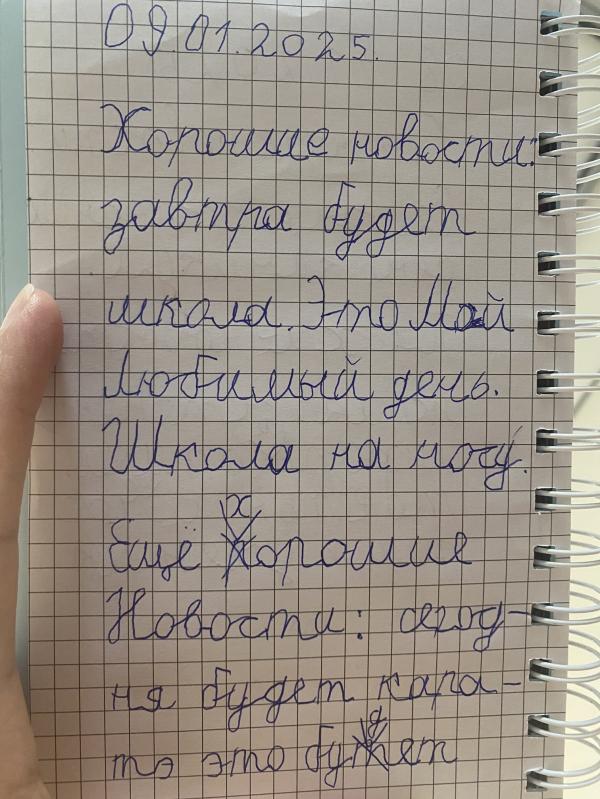 09.01.2025.
Хорошие новости:
завтра будет
школа. Это Мой
любимый день.
Школа на носу.
Ещё хорошие
Новости: сегод-
ня будет кара-
тэ это будет